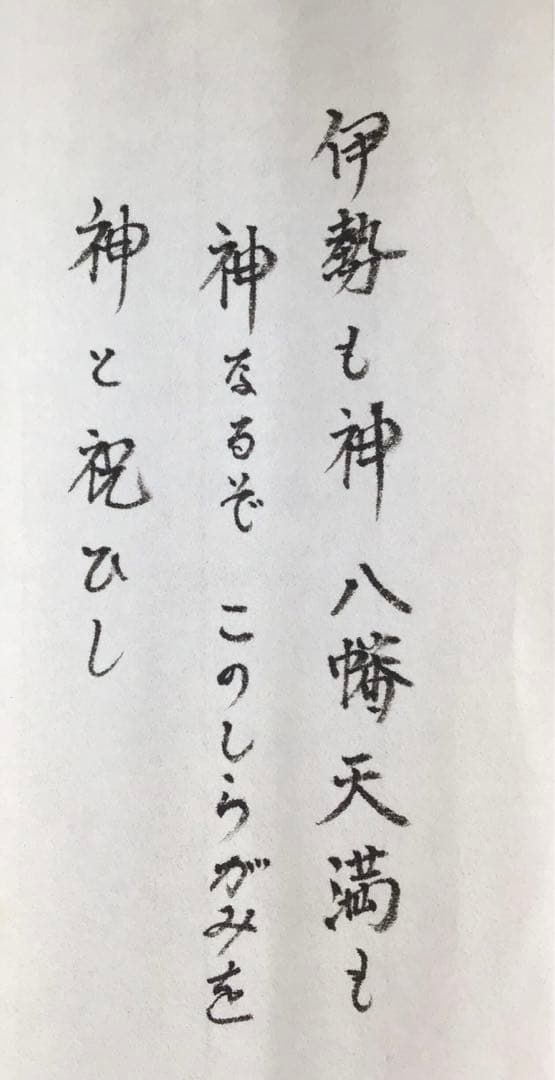 伊勢も神 八幡天満も
神なるぞ このしらがみを
神と祝ひし